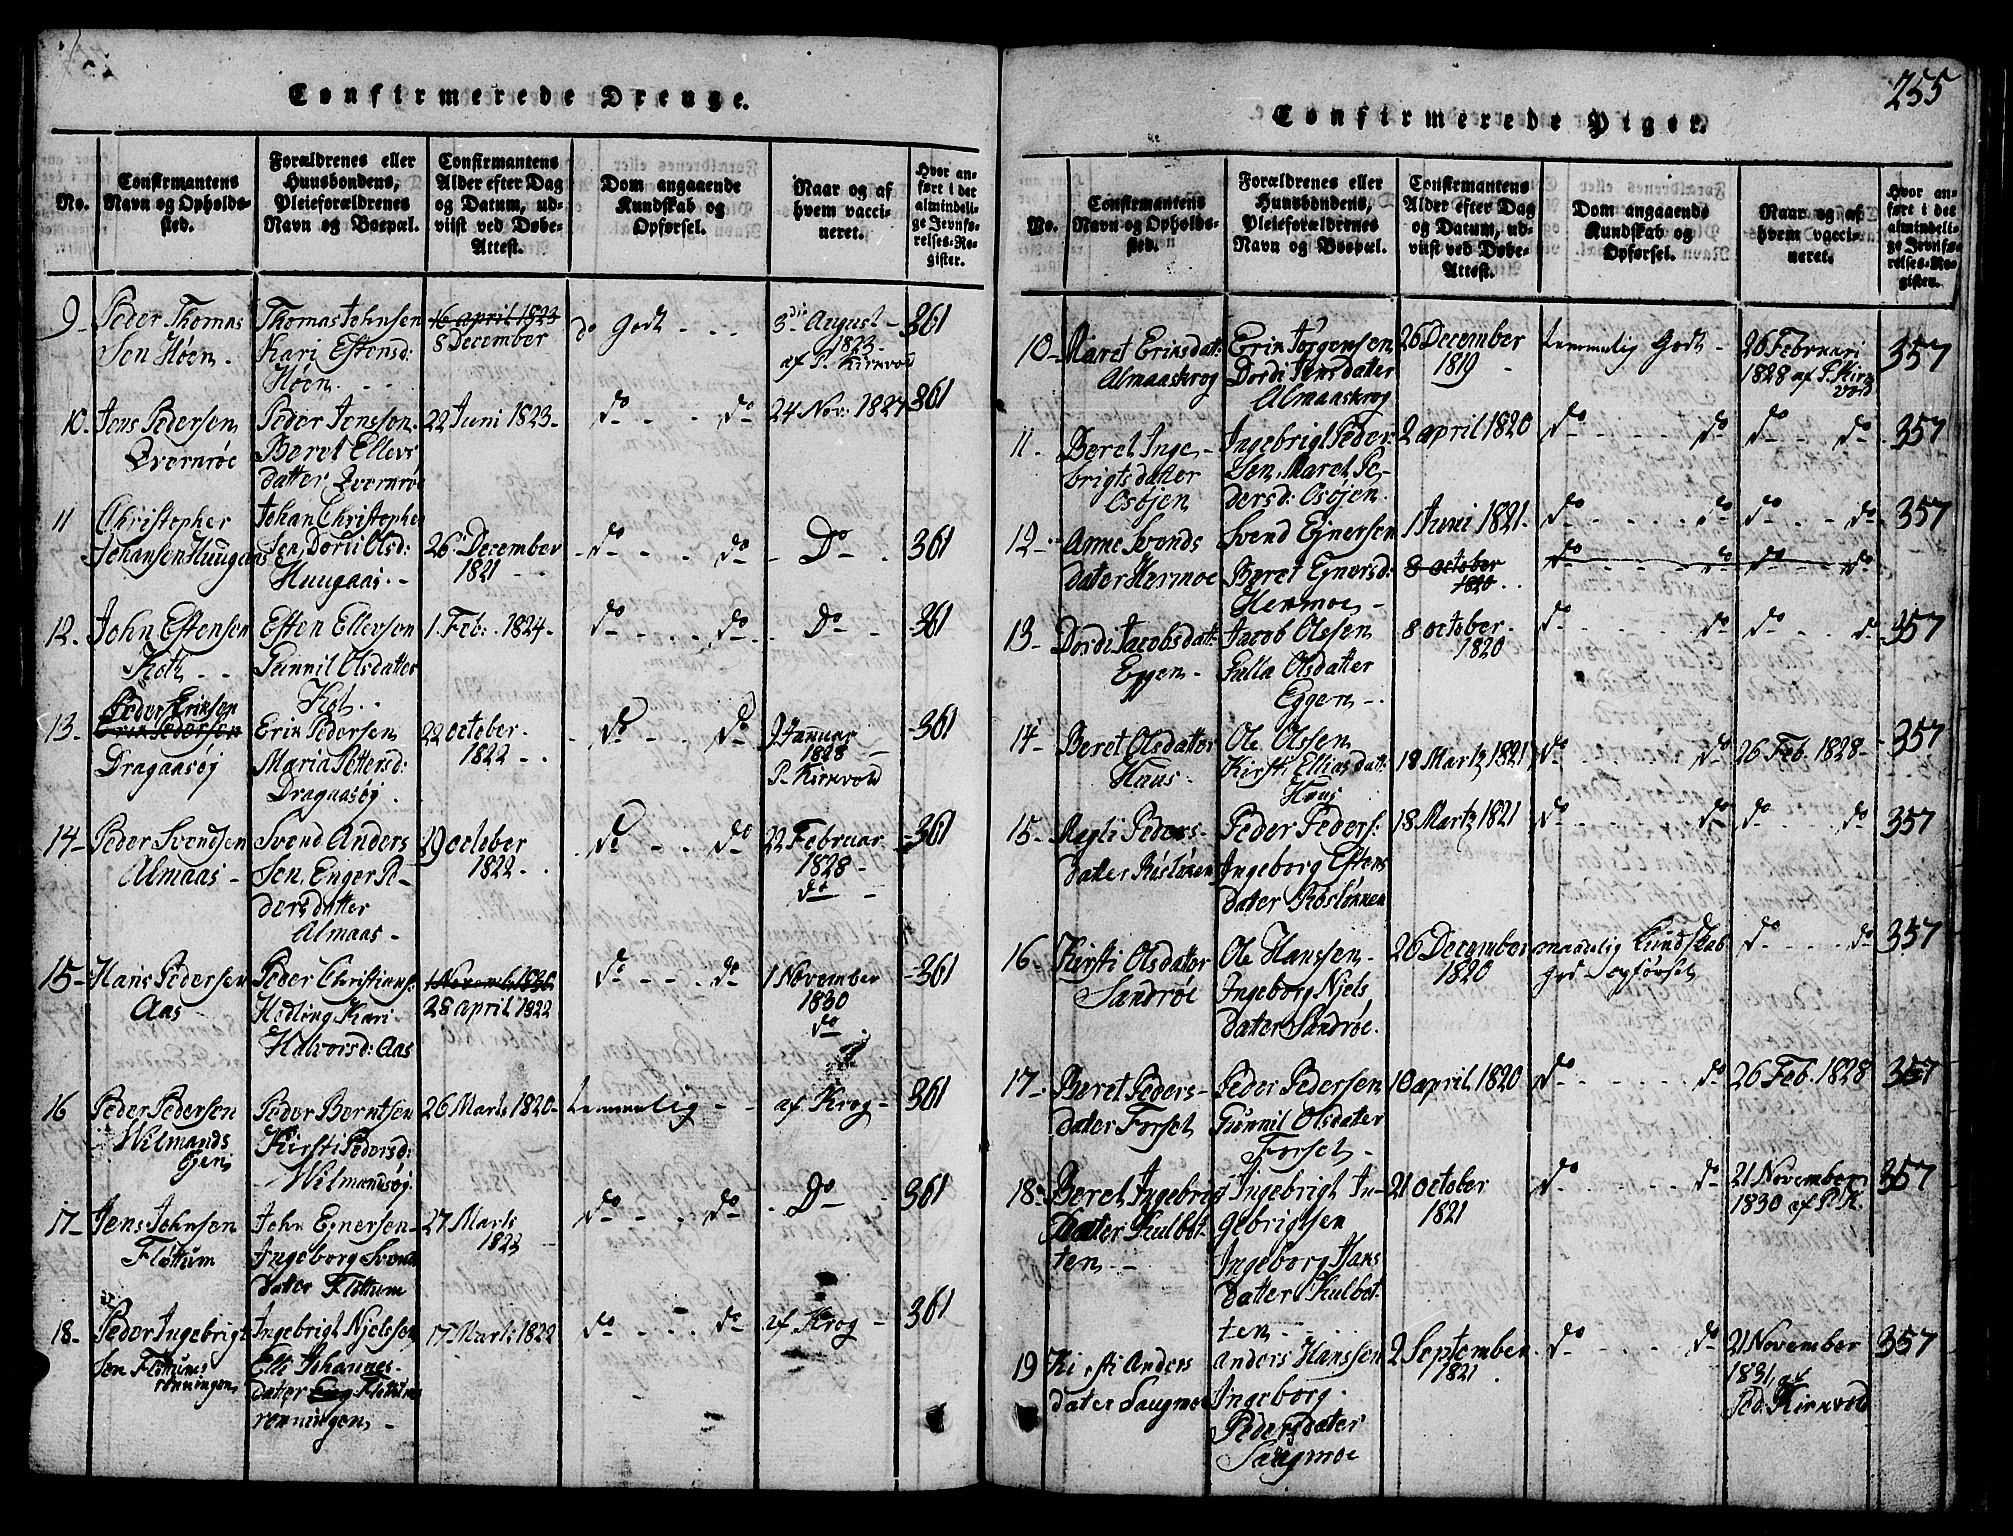 Confirmerede Drenge.
No.
Confirmantens
Navn og Opholds-
sted.
Forældrenes eller
Huusbondens,
Pleieforældrenes
Navn og Boepæl.
Confirmantens
Alder efter Dag
og Datum, ud-
viist ved Døbe-
Attest.
Dom angaaende
Kundskab og
Opførsel.
Naar og af
hvem vacci-
neret.
Hvor an-
ført i det
almindeli-
ge Jevnfø-
relses-Re-
gister.
9 Peder Thomas
Sen Høen
Thomas Johnsen
Kari Estensd:
Høen
16 april 1823
8 December
do Godt
3die August
1823
af P. Kirkvold
361
10 Jens Pedersen
Qvernrøe
Peder Jenssen
Beret Ellevs
datter Qvernrøe
22 Juni 1823
do do
24 Nov: 1827
361
11 Christopher
Johansen Huugaas
Johan Christopher
Sen, Dordi Olsd:
Huugaas
26 December
1821
do do
Do
361
12 John Estensen
Koth
Esten Ellevsen
Gunnil Olsdatter
Kot
1 Feb: 1824
do do
Do
361
13 Peder Eriksen
Erik Pedersen
Dragaasøj
Erik Pedersen
Maria Pettersd:
Dragaasøj
22 october
1822
do do
9 Januar
1828
P. Kirkvold
361
14 Peder Svendsen
Almaas
Svend Anders
Sen, Enger Pe-
dersdatter
Almaas
29 october
1822
do do
22 Februar
1828
do
361
15 Hans Pedersen
Aas
Peder Christians:
Hedling Kari
Halvorsd: Aas
1 Novemb 1830
28 april 1822
do do
1 November
1830
do
361
16 Peder Pedersen
Wilmands
øjen
Peder Berntsen
Kirsti Pedersd:
Wilmandsøj
26 Marts 1820
temmelig
af Krog
361
17 Jens Johnsen
Fløttum
John Ejnersen
Ingeborg Svends
datter Fløttum
27 Marts
1822
do do
Do
361
18 Peder Ingebrigt
Sen Fløttums
rønningen
Ingebrigt Njelssen
Elli Johannes
dater Fløttums
rønningen
17 Marts 1822
do do
af Krog
361
255
Confirmerede Piger.
No.
Confirmantens
Navn og Opholds-
sted.
Forældrenes eller
Huusbondens,
Pleieforældrenes
Navn og Boepæl.
Confirmantens
Alder efter Dag
og Datum, ud-
viist ved Døbe-
Attest.
Dom angaaende
Kundskab og
Opførsel.
Naar og af
hvem vacci-
neret.
Hvor an-
ført i det
almindeli-
ge Jevnfø-
relses-Re-
gister.
10 Maret Eriksdatt:
Almaaskrog
Erik Jørgensen
Dordi Jensdatter
Almaaskrog
26 December
1819
temmelig Godt
26 Februari
1828 af P. Kirk
vold
357
11 Beret Inge-
brigtsdatter
Osøjen
Ingebrigt Peder
Sen, Maret Pe-
dersd: Osøjen
2 april 1820
do do
do do
357
12 Anne Svends
dater Hermoe
Svend Ejnersen
Beret Ejnersd:
Hermoe
1 Juni 1821
8 october
1820
do do
do do
do do
do do
357
13 Dordi Jacobsdat:
Eggen
Jacob Olssen
Gulla Olsdatter
Eggen
8 october
1820
do do
do do
357
14 Beret Olsdatter
Huus
Ole Olssen
Kirsti Elliasdat:
Huus
18 Martz 1821
do do
26 Feb. 1828
357
15 Magli Peders
dater Røsløkken
Peder Peders:
Ingeborg Estens
dater Røsløkken
18 Martz 1821
do do
do do
357
16 Kirsti Olsdatter
Sandrøe
Ole Hanssen
Ingeborg Njels
dater Sandrøe
26 December
1820
maadelig Kundskab
god opførsel
do do
357
17 Beret Peders-
dater Forset
Peder Pedersen
Gunnil Olsdater
Forset
10 april 1820
do do
26 Feb. 1828
357
18 Beret Ingebrig
Dater Kulbot-
ten
Ingebrigt In-
gebrigtsen
Ingeborg Hans
datter Kulbot-
ten
21 october
1821
do do
21 November
1830 af P. K.
357
19 Kirsti Anders
dater Saugmoe
anders Hanssen
Ingeborg
Pedersdater
Saugmoe
2 September
1821
do do
21 November
1831, af
Ped: Kirkvold
357